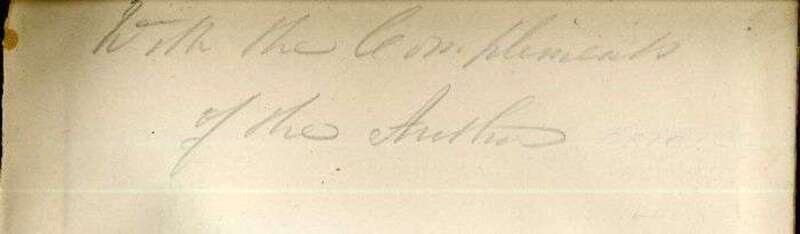 With the Compliments
of the Author